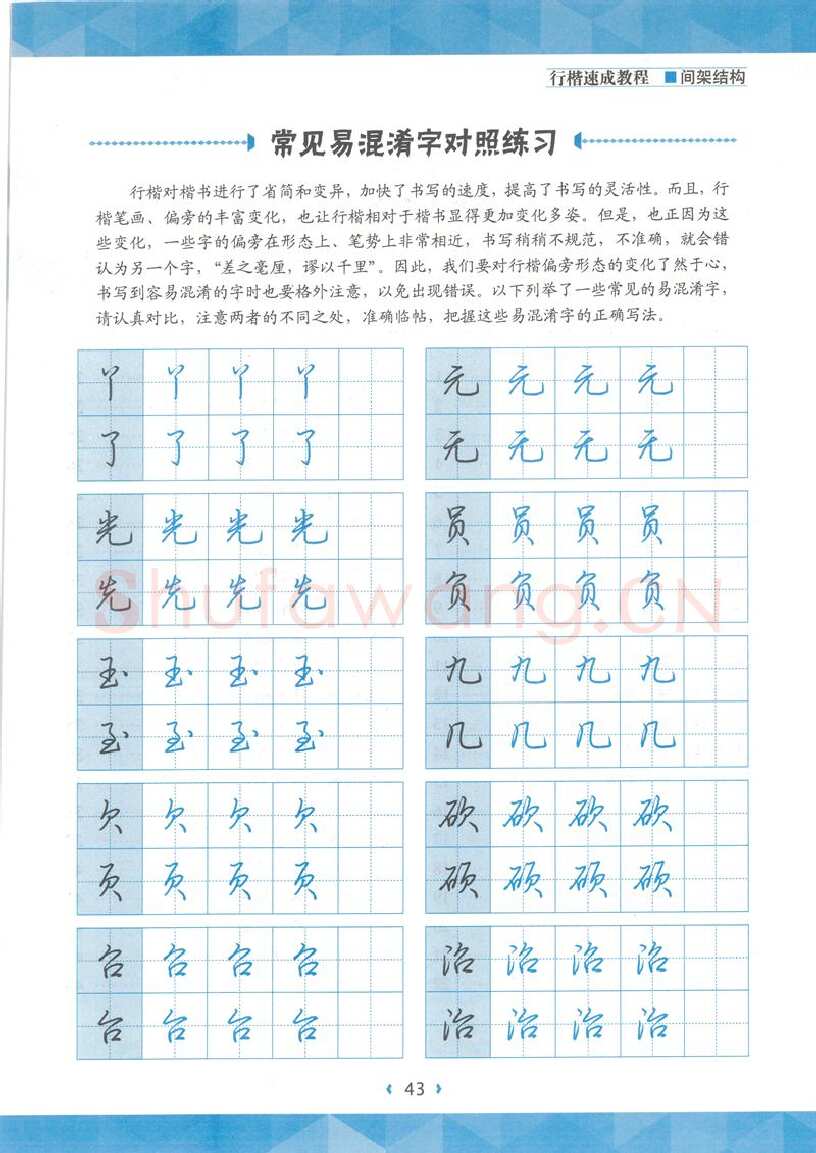 行楷速成教程 ■间架结构
常见易混淆字对照练习
行楷对楷书进行了省简和变异，加快了书写的速度，提高了书写的灵活性。而且，行
楷笔画、偏旁的丰富变化，也让行楷相对于楷书显得更加变化多姿。但是，也正因为这
些变化，一些字的偏旁在形态上、笔势上非常相近，书写稍稍不规范，不准确，就会错
认为另一个字，“差之毫厘，谬以千里”。因此，我们要对行楷偏旁形态的变化了然于心，
书写到容易混淆的字时也要格外注意，以免出现错误。以下列举了一些常见的易混淆字，
请认真对比，注意两者的不同之处，准确临帖，把握这些易混淆字的正确写法。
丫 丫 丫 丫
了 了 了 了
元 元 元 元
无 无 无 无
光 光 光 光
先 先 先 先
员 员 员 员
负 负 负 负
玉 玉 玉 玉
至 至 至 至
九 九 九 九
几 几 几 几
欠 欠 欠 欠
页 页 页 页
砍 砍 砍 砍
硕 硕 硕 硕
召 召 召 召
台 台 台 台
沿 沿 沿 沿
治 治 治 治
Shufawang.CN
43